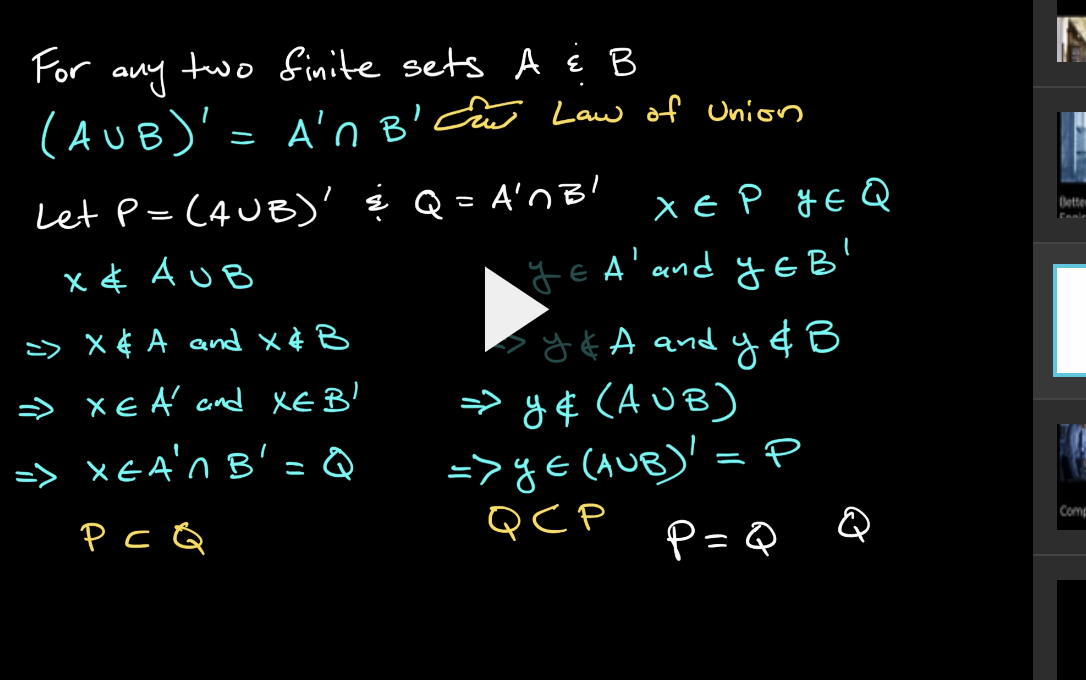 For any two finite sets A & B
(A∪B)' = A'∩ B' Law of Union
Let P = (A∪B)' & Q = A'∩B' x ∈ P y ∈ Q
x ∉ A ∪ B
y ∈ A' and y ∈ B'
=> x ∉ A and x ∉ B
=> y ∉ A and y ∉ B
=> x ∈ A' and x ∈ B'
=> y ∉ (A ∪ B)
=> x ∈ A'∩ B' = Q
=> y ∈ (A∪B)' = P
P ⊂ Q
Q ⊂ P
P = Q Q
Bette
Comp